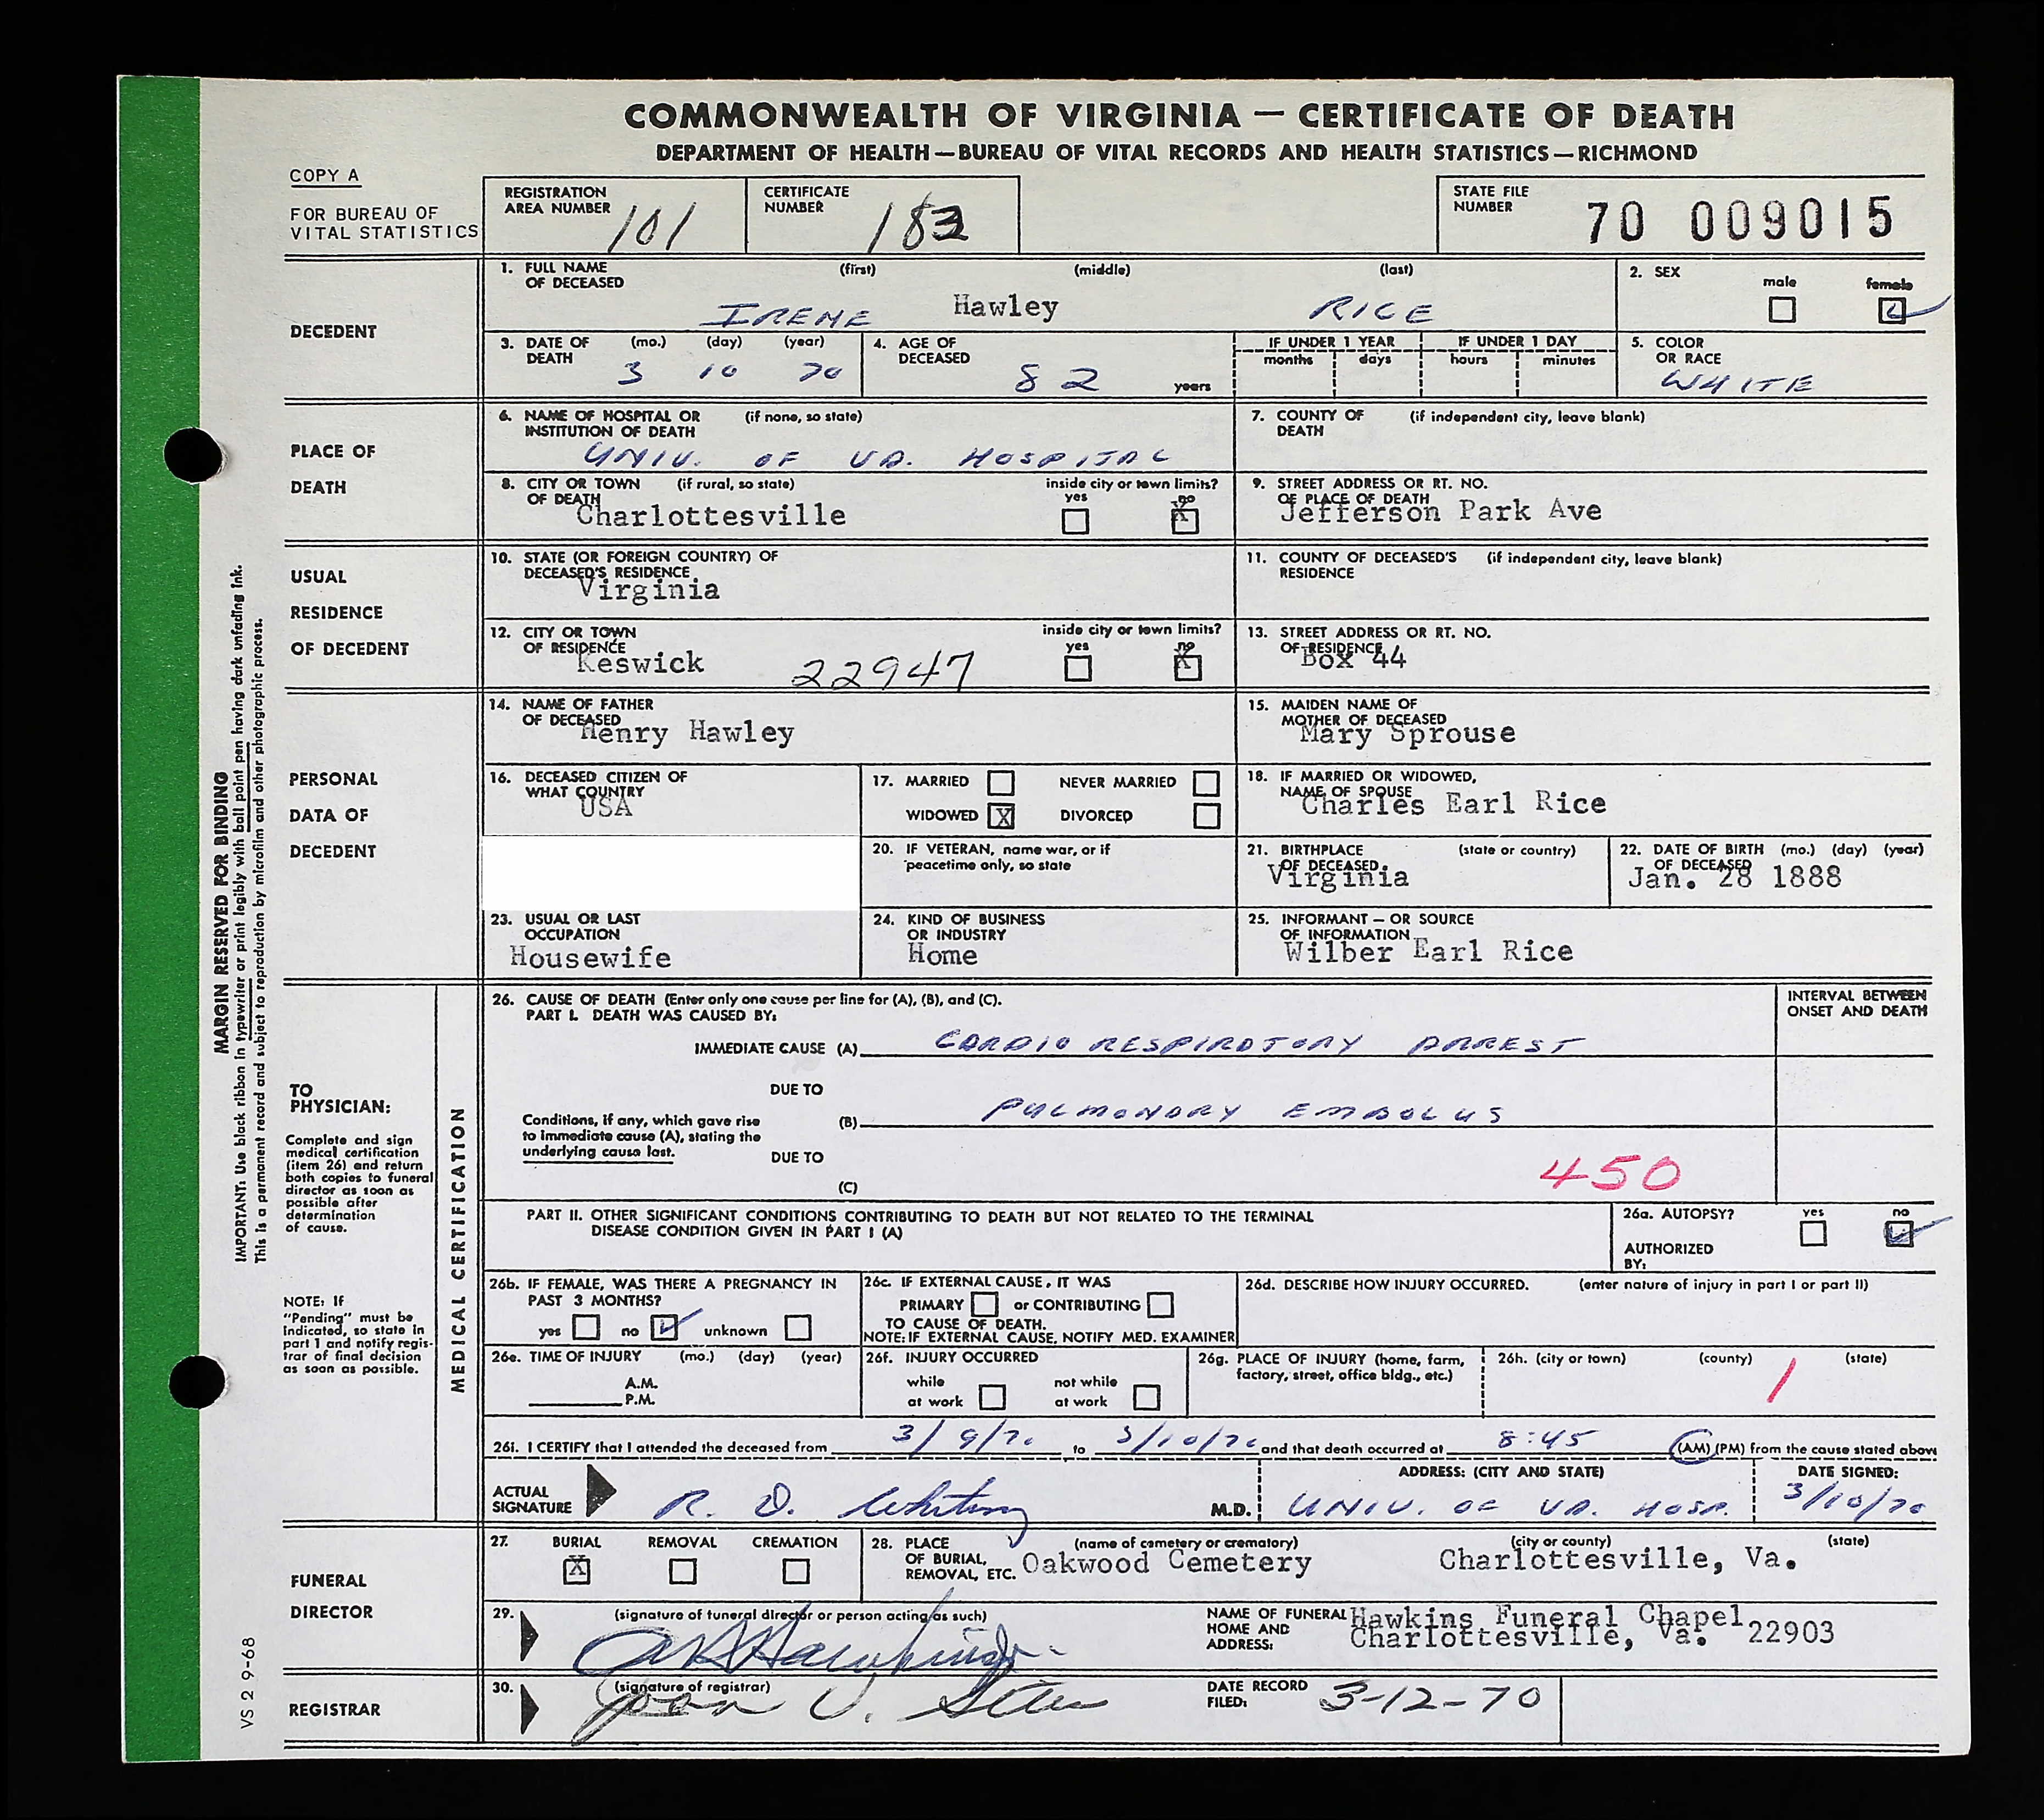 COMMONWEALTH OF VIRGINIA — CERTIFICATE OF DEATH
DEPARTMENT OF HEALTH—BUREAU OF VITAL RECORDS AND HEALTH STATISTICS—RICHMOND
COPY A
FOR BUREAU OF
VITAL STATISTICS
REGISTRATION
AREA NUMBER 101
CERTIFICATE
NUMBER 183
STATE FILE
NUMBER 70 009015
DECEDENT
1. FULL NAME (first) (middle) (last)
OF DECEASED
IRENE Hawley RICE
2. SEX
male female
3. DATE OF (mo.) (day) (year)
DEATH 3 10 70
4. AGE OF
DECEASED 82 years
IF UNDER 1 YEAR IF UNDER 1 DAY
months days hours minutes
5. COLOR
OR RACE
WHITE
PLACE OF
DEATH
6. NAME OF HOSPITAL OR (if none, so state)
INSTITUTION OF DEATH
UNIV. OF VA. HOSPITAL
7. COUNTY OF (if independent city, leave blank)
DEATH
8. CITY OR TOWN (if rural, so state) inside city or town limits?
OF DEATH yes no
Charlottesville X
9. STREET ADDRESS OR RT. NO.
OF PLACE OF DEATH
Jefferson Park Ave
USUAL
RESIDENCE
OF DECEDENT
10. STATE (OR FOREIGN COUNTRY) OF
DECEASED'S RESIDENCE
Virginia
11. COUNTY OF DECEASED'S (if independent city, leave blank)
RESIDENCE
12. CITY OR TOWN inside city or town limits?
OF RESIDENCE yes no
Keswick 22947 X
13. STREET ADDRESS OR RT. NO.
OF RESIDENCE
Box 44
PERSONAL
DATA OF
DECEDENT
14. NAME OF FATHER
OF DECEASED
Henry Hawley
15. MAIDEN NAME OF
MOTHER OF DECEASED
Mary Sprouse
16. DECEASED CITIZEN OF
WHAT COUNTRY
USA
17. MARRIED NEVER MARRIED
WIDOWED X DIVORCED
18. IF MARRIED OR WIDOWED,
NAME OF SPOUSE
Charles Earl Rice
20. IF VETERAN, name war, or if
peacetime only, so state
21. BIRTHPLACE (state or country)
OF DECEASED
Virginia
22. DATE OF BIRTH (mo.) (day) (year)
OF DECEASED
Jan. 28 1888
23. USUAL OR LAST
OCCUPATION
Housewife
24. KIND OF BUSINESS
OR INDUSTRY
Home
25. INFORMANT — OR SOURCE
OF INFORMATION
Wilber Earl Rice
MARGIN RESERVED FOR BINDING
IMPORTANT: Use black ribbon in typewriter or print legibly with ball point pen having dark unfading ink.
This is a permanent record and subject to reproduction by microfilm and other photographic process.
TO
PHYSICIAN:
Complete and sign
medical certification
(item 26) and return
both copies to funeral
director as soon as
possible after
determination
of cause.
NOTE: If
"Pending" must be
indicated, so state in
part 1 and notify regis-
trar of final decision
as soon as possible.
MEDICAL CERTIFICATION
26. CAUSE OF DEATH (Enter only one cause per line for (A), (B), and (C).
PART I. DEATH WAS CAUSED BY:
INTERVAL BETWEEN
ONSET AND DEATH
IMMEDIATE CAUSE (A) CARDIO RESPIRATORY ARREST
DUE TO
Conditions, if any, which gave rise
to immediate cause (A), stating the
underlying cause last.
(B) PULMONARY EMBOLUS
DUE TO
450
(C)
PART II. OTHER SIGNIFICANT CONDITIONS CONTRIBUTING TO DEATH BUT NOT RELATED TO THE TERMINAL
DISEASE CONDITION GIVEN IN PART I (A)
26a. AUTOPSY? yes no
AUTHORIZED
BY:
26b. IF FEMALE, WAS THERE A PREGNANCY IN
PAST 3 MONTHS?
yes no unknown
26c. IF EXTERNAL CAUSE, IT WAS
PRIMARY or CONTRIBUTING
TO CAUSE OF DEATH.
NOTE: IF EXTERNAL CAUSE, NOTIFY MED. EXAMINER
26d. DESCRIBE HOW INJURY OCCURRED. (enter nature of injury in part I or part II)
26e. TIME OF INJURY (mo.) (day) (year)
A.M.
P.M.
26f. INJURY OCCURRED
while not while
at work at work
26g. PLACE OF INJURY (home, farm,
factory, street, office bldg., etc.)
26h. (city or town) (county) (state)
1
26i. I CERTIFY that I attended the deceased from 3/9/70 to 3/10/70 and that death occurred at 8:45 (AM) (PM) from the cause stated above
ACTUAL
SIGNATURE R. D. Whiting M.D.
ADDRESS: (CITY AND STATE)
UNIV. OF VA. HOSP.
DATE SIGNED:
3/10/70
FUNERAL
DIRECTOR
27. BURIAL REMOVAL CREMATION
X
28. PLACE (name of cemetery or crematory) (city or county) (state)
OF BURIAL,
REMOVAL, ETC. Oakwood Cemetery Charlottesville, Va.
29. (signature of funeral director or person acting as such)
NAME OF FUNERAL
HOME AND
ADDRESS:
Hawkins Funeral Chapel
Charlottesville, Va. 22903
REGISTRAR
30. (signature of registrar)
DATE RECORD
FILED: 3-12-70
VS 2 9-68